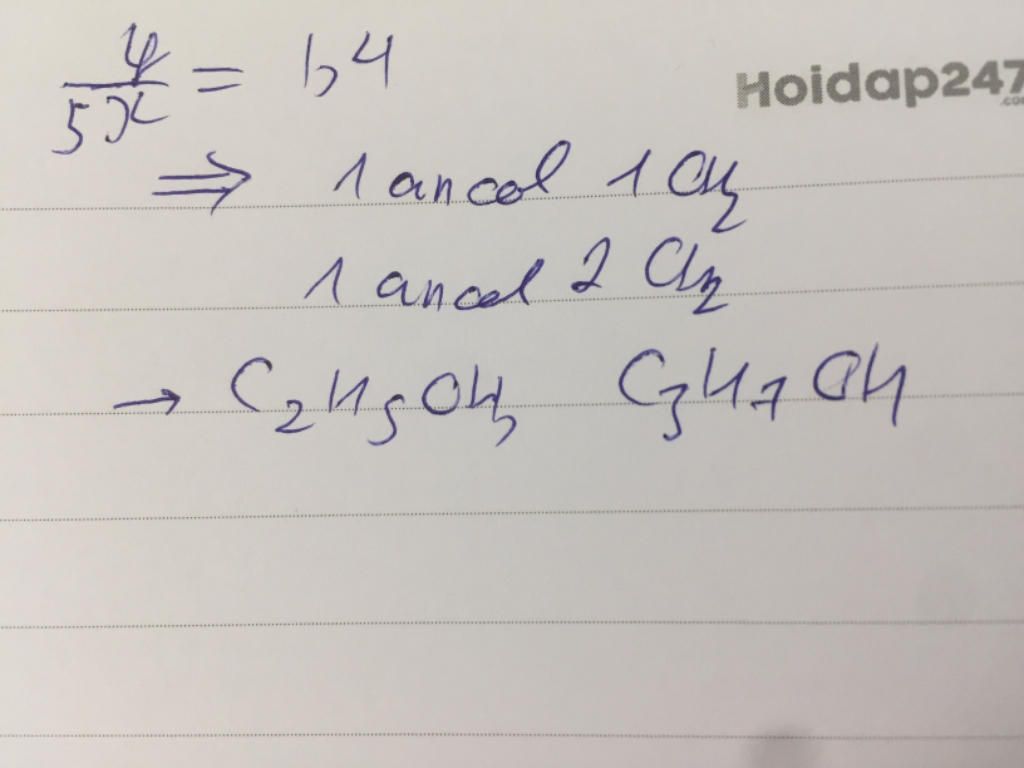 y/5x = 1,4
Hoidap247
.com
⇒ 1 ancol 1 CH2
1 ancol 2 CH2
→ C2H5OH, C3H7OH